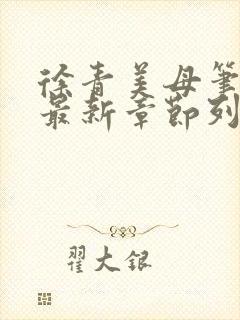 徐青美母筆
最新章節列
翟大銀